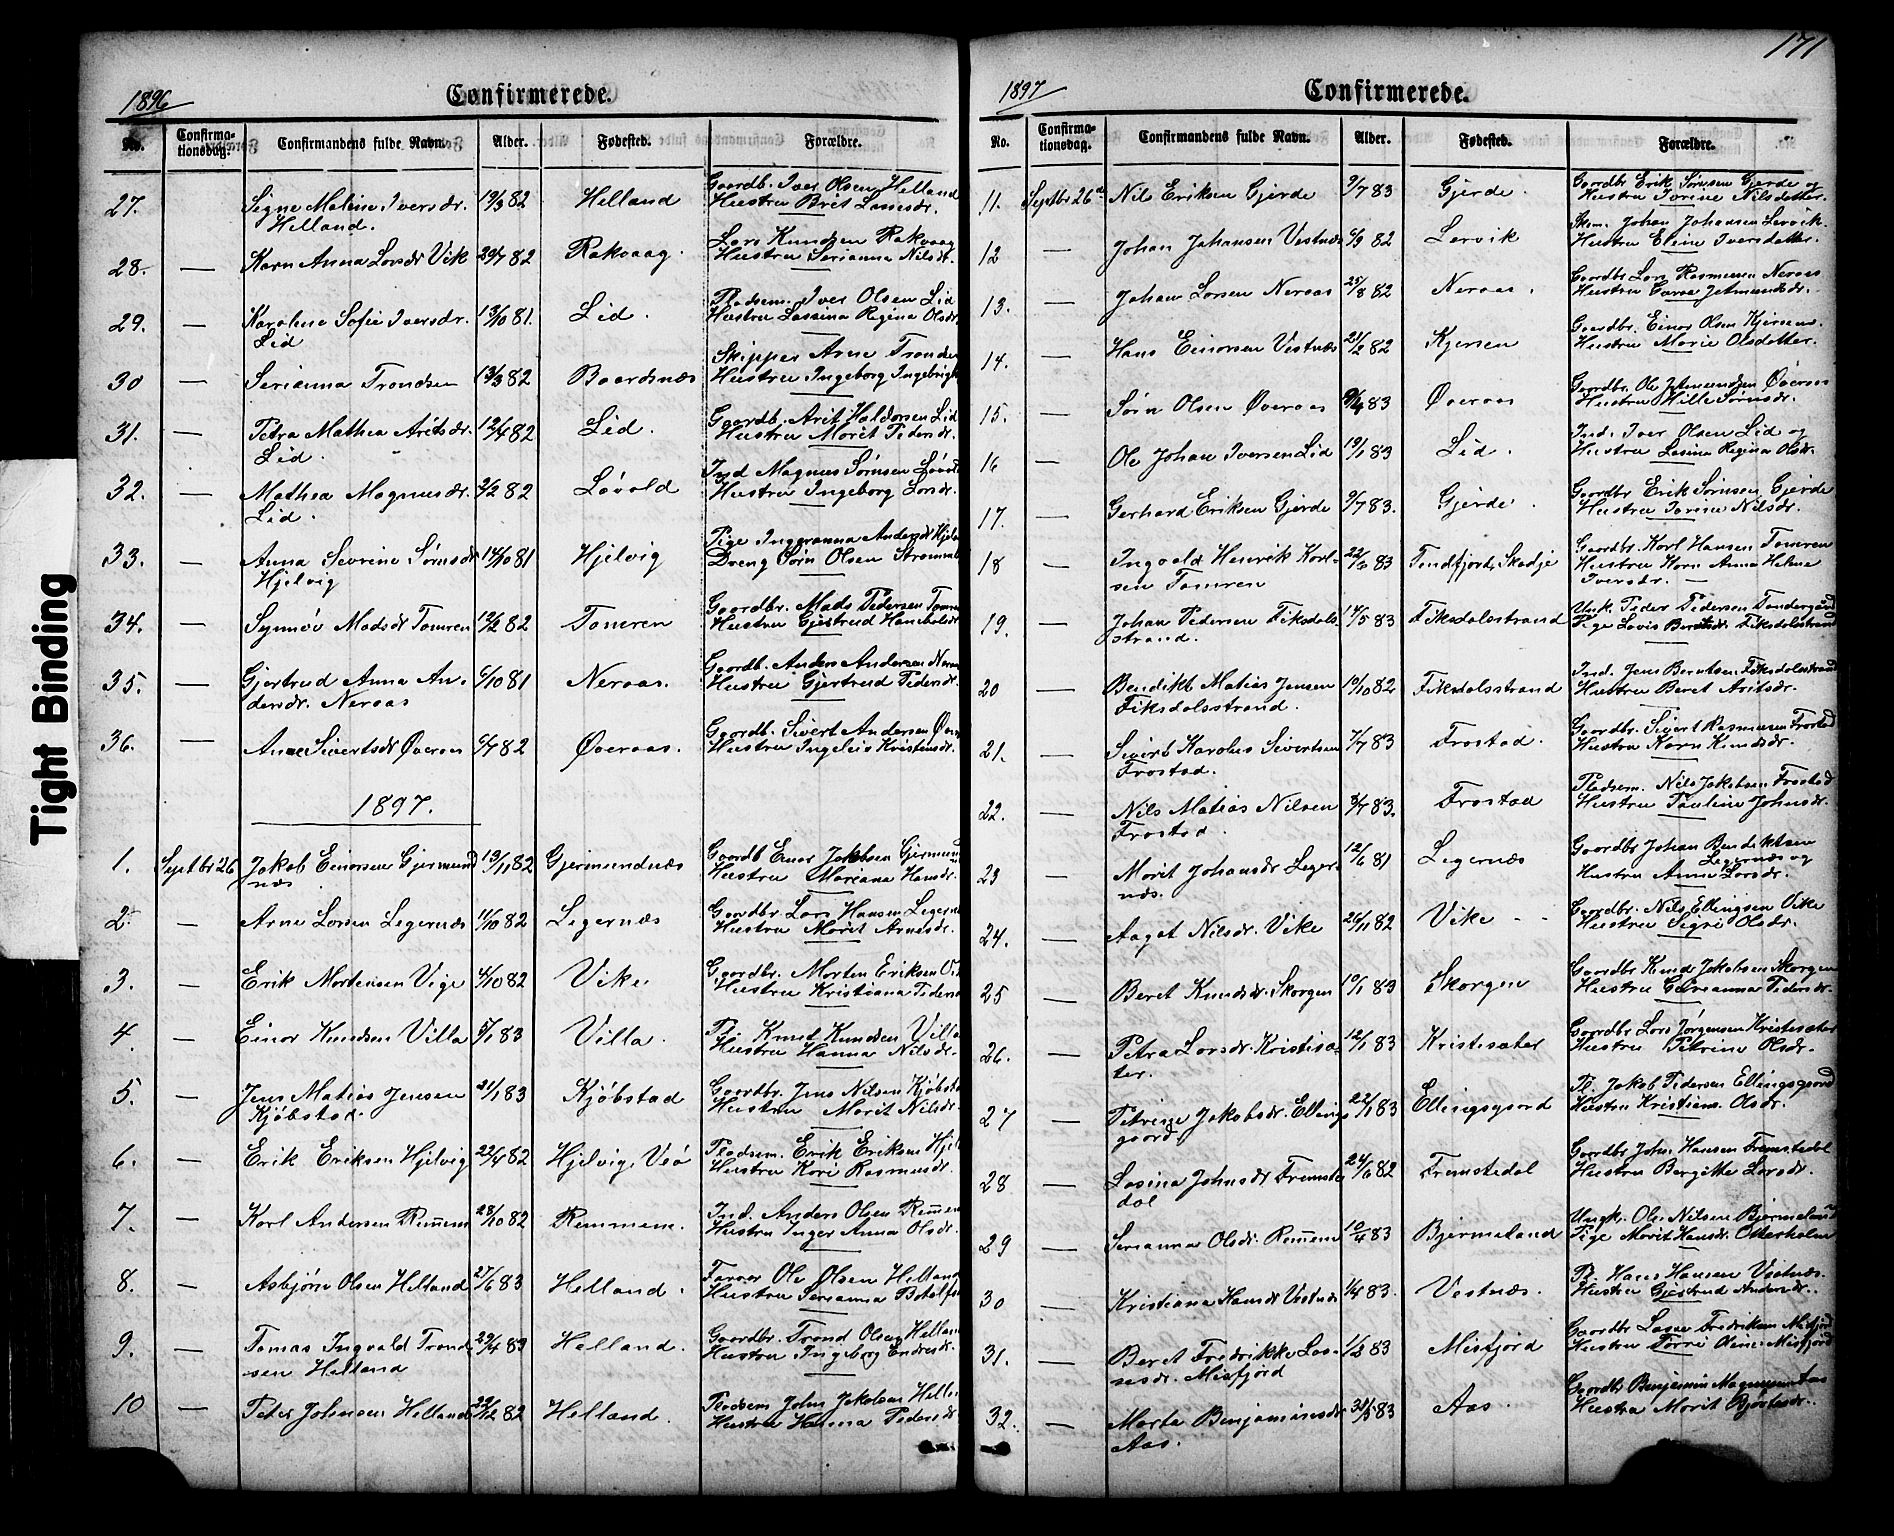 Tight Binding
1896
Confirmerede.
No.
Confirma-
tionsdag.
Confirmandens fulde Navn.
Alder.
Fødested.
Forældre.
27.
Signe Maline Iversdr.
Helland.
19/3 82
Helland
Gaardb. Iver Olsen Helland
Hustru Brit Larsdr.
28. —
Karn Anna Larsdr Vik
29/7 82
Rakvaag.
Lars Knudsen Rakvaag
Hustru Serianna Nilsdr.
29. —
Karoline Sofie Iversdr.
Lid
13/10 81.
Lid.
Pladsem. Iver Olsen Lid
Hustru Lassina Regina Olsdr.
30 —
Serianna Trondsen
13/3 82
Baardsnæs
Skipper Arne Tronds
Hustru Ingeborg Ingebrigt
31. —
Petra Mathea Aritsdr.
Lid.
12/4 82
Lid.
Gaardb. Arit Haldorsen Lid
Hustru Marit Pedersdr.
32. —
Mathea Magnusdr.
Lid.
2/2 82
Løvold
Ind Magnus Sørnsen Løvold
Hustru Ingeborg Larsdr.
33. —
Anna Severine Sørnsdr
Hjelvig
14/10 81
Hjelvig
Pige Ingeranna Andersdr Hjel
Dreng Sørn Olsen
34. —
Synnøv Madsdr Tomren
12/2 82
Tomren
Gaardbr. Mads Pedersen Tomre
Hustru Gjertrud
35. —
Gjertrud Anna An-
dersdr. Neraas
6/10 81
Neraas.
Gaardb. Anders Andersen Neraa
Hustru Gjertrud Pedersdr.
36. —
Anne Sivertsdr Øveraas
6/7 82
Øveraas.
Gaardb. Sivert Andersen Øver
Hustru Ingeleis Kristensdr.
1897.
1.
Septbr 26
Jakob Einarsen Gjermund
næs
13/11 82
Gjermundnæs
Gaardb Einar Jakobsen Gjermund
Hustru Mariana Hansdr.
2. —
Arne Larsen Legernæs
11/10 82
Legernæs
Gaardbr. Lars Hansen Legernæ
Hustru Marit Arnesdr.
3. —
Erik Mortensen Vige
4/10 82
Vike
Gaardbr. Morten Eriksen Vi
Hustru Kristiana Peders
4. —
Einar Knudsen Villa
5/1 83
Villa.
Pl. Knut Knudsen Villa
Hustru Hanna Nilsdr.
5. —
Jens Matias Jensen
Kjøbstad.
21/1 83
Kjøbstad
Gaardbr. Jens Nilsen Kjøbsta
Hustru Marit Nilsdr.
6. —
Erik Eriksen Hjelvig
22/4 82
Hjelvig, Veø
Pladsem. Erik Eriksen Hjel
Hustru Kari Rasmusdr.
7. —
Karl Andersen Remmem
28/10 82
Remmem.
Ind. Anders Olsen Remem
Hustru Inger Anna Olsdr.
8. —
Asbjørn Olsen Helland
27/6 83
Helland.
Forver Ole Olsen Helland
Hustru Serianna Botolfs
9. —
Tomas Ingvald Trond
sen Helland
29/4 83
Helland.
Gaardbr. Trond Olsen Hellan
Hustru Ingeborg Endresdr.
10 —
Peter Johnsen Helland
29/12 82
Helland.
Pladsem John Jakobsen Hella
Hustru Hanna Pedersdr
171
1897
Confirmerede.
No.
Confirma-
tionsdag.
Confirmandens fulde Navn.
Alder.
Fødested.
Forældre.
11.
Septbr 26de
Nils Eriksen Gjerde
9/7 83
Gjerde.
Gaardbr Erik Sørnsen Gjerde og
Hustru Jorine Nilsdatter.
12 —
Johan Johansen Vestnæs
6/9 82
Lervik
Skm. Johan Johansen Lervik
Hustru Eline Iversdatter.
13. —
Johan Larsen Neraas
25/8 82
Neraas.
Gaardbr Lars Rasmussen Neraas
Hustru Jetmundsdr.
14. —
Hans Einarsen Vestnæs
21/2 82
Kjersen
Gaardbr. Einar Olsen Kjersem
Hustru Marie Olsdatter.
15. —
Sørn Olsen Øveraas
9/4 83
Øveraas
Gaardbr. Ole Jetmundsen Øveraas
Hustru Hille Sørnsdr.
16 —
Ole Johan Iversen Lid
19/1 83
Lid.
Ind. Iver Olsen Lid og
Hustru Lasina Regina Olsdr.
17. —
Gerhard Eriksen Gjerde
9/7 83.
Gjerde.
Gaardbr Erik Sørnsen Gjerde
Hustru Jorine Nilsdr.
18 —
Ingvald Henrik Karl-
sen Tomren
Tendfjord, Skodje
Gaardbr. Karl Hansen Tomren
Hustru Karn Anna Heline
Iversdr. —
19. —
Johan Pedersen Fiksdals
strand.
14/5 83
Fiksdalsstrand
Unk. Peder Pedersen Tondergaard
Pige Lovis Berntsdr. Fiksdalsstrand
20 —
Bendikt Matias Jensen
Fiksdalsstrand.
19/10 82
Fiksdalsstrand
Ind. Jens Berntsen Fiksdalsstrand
Hustru Beret Aritsdr.
21. —
Sivert Karolus Sivertsen
Frostad.
7/7 83
Frostad.
Gaardbr. Sivert Rasmussen Frostad
Hustru Karn Knudsdr.
22. —
Nils Matias Nilsen
Frostad.
3/7 83.
Frostad
Pladsem. Nils Jakobsen Frostad
Hustru Pauline Johnsdr.
23 —
Marit Johansdr Leger-
næs.
12/6 81
Legernæs
Gaardbr Johan Bendiktsen
Legernæs og
Hustru Anne Larsdr.
24. —
Aagot Nilsdr. Vike
26/11 82
Vike
Gaardbr. Nils Ellingsen Vike
Hustru Signe Olsdr.
25 —
Beret Knudsdr. Skorgen
19/1 83
Skorgen
Gaardbr Knud Jakobsen Skorgen
Hustru Pedersdr.
26. —
Petra Larsdr. Kristisæ-
ter.
12/1 83
Kristisæter
Gaardbr Lars Jørgensen Kristisæter
Hustru Petrine Olsdr.
27 —
Petrine Jakobsdr. Ellings
gaard
22/1 83
Ellingsgaard
Pl. Jakob Pedersen Ellingsgaard
Hustru Kristiane Olsdr.
28 —
Lasina Johnsdr Fremste
dal
24/6 82
Fremstedal
Gaardbr John Hansen Fremstedal
Hustru Bergitte Larsdr.
29 —
Serianna Olsdr. Remem
10/4 83
Bjermeland
Ungk. Ole Nilsen Bjermeland
Pige Marit Hansdr. Otterholm
30 —
Kristiana Hansdr Vestnæs
1/4 83.
Vestnæs.
Pl. Hans Hansen Vestnæs.
Hustru Gjertrud Andersdr.
31. —
Beret Fredrikke Las-
sesdr. Misfjord
1/2 83
Misfjord
Gaardbr Lasse Fredriksen Misfjord
Hustru Torre Oline Misfjord
32. —
Marta Benjaminsdr
Aas.
31/5 83
Aas.
Gaardbr Benjamin Magnussen Aas
Hustru Marit Bjørnsdr.